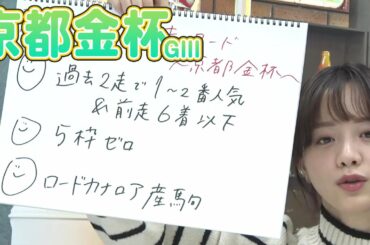 京都金杯GIII
ロード
〜京都金杯〜
過去2走で1〜2番人気
&前走6着以下
5枠ゼロ
ロードカナロア産駒